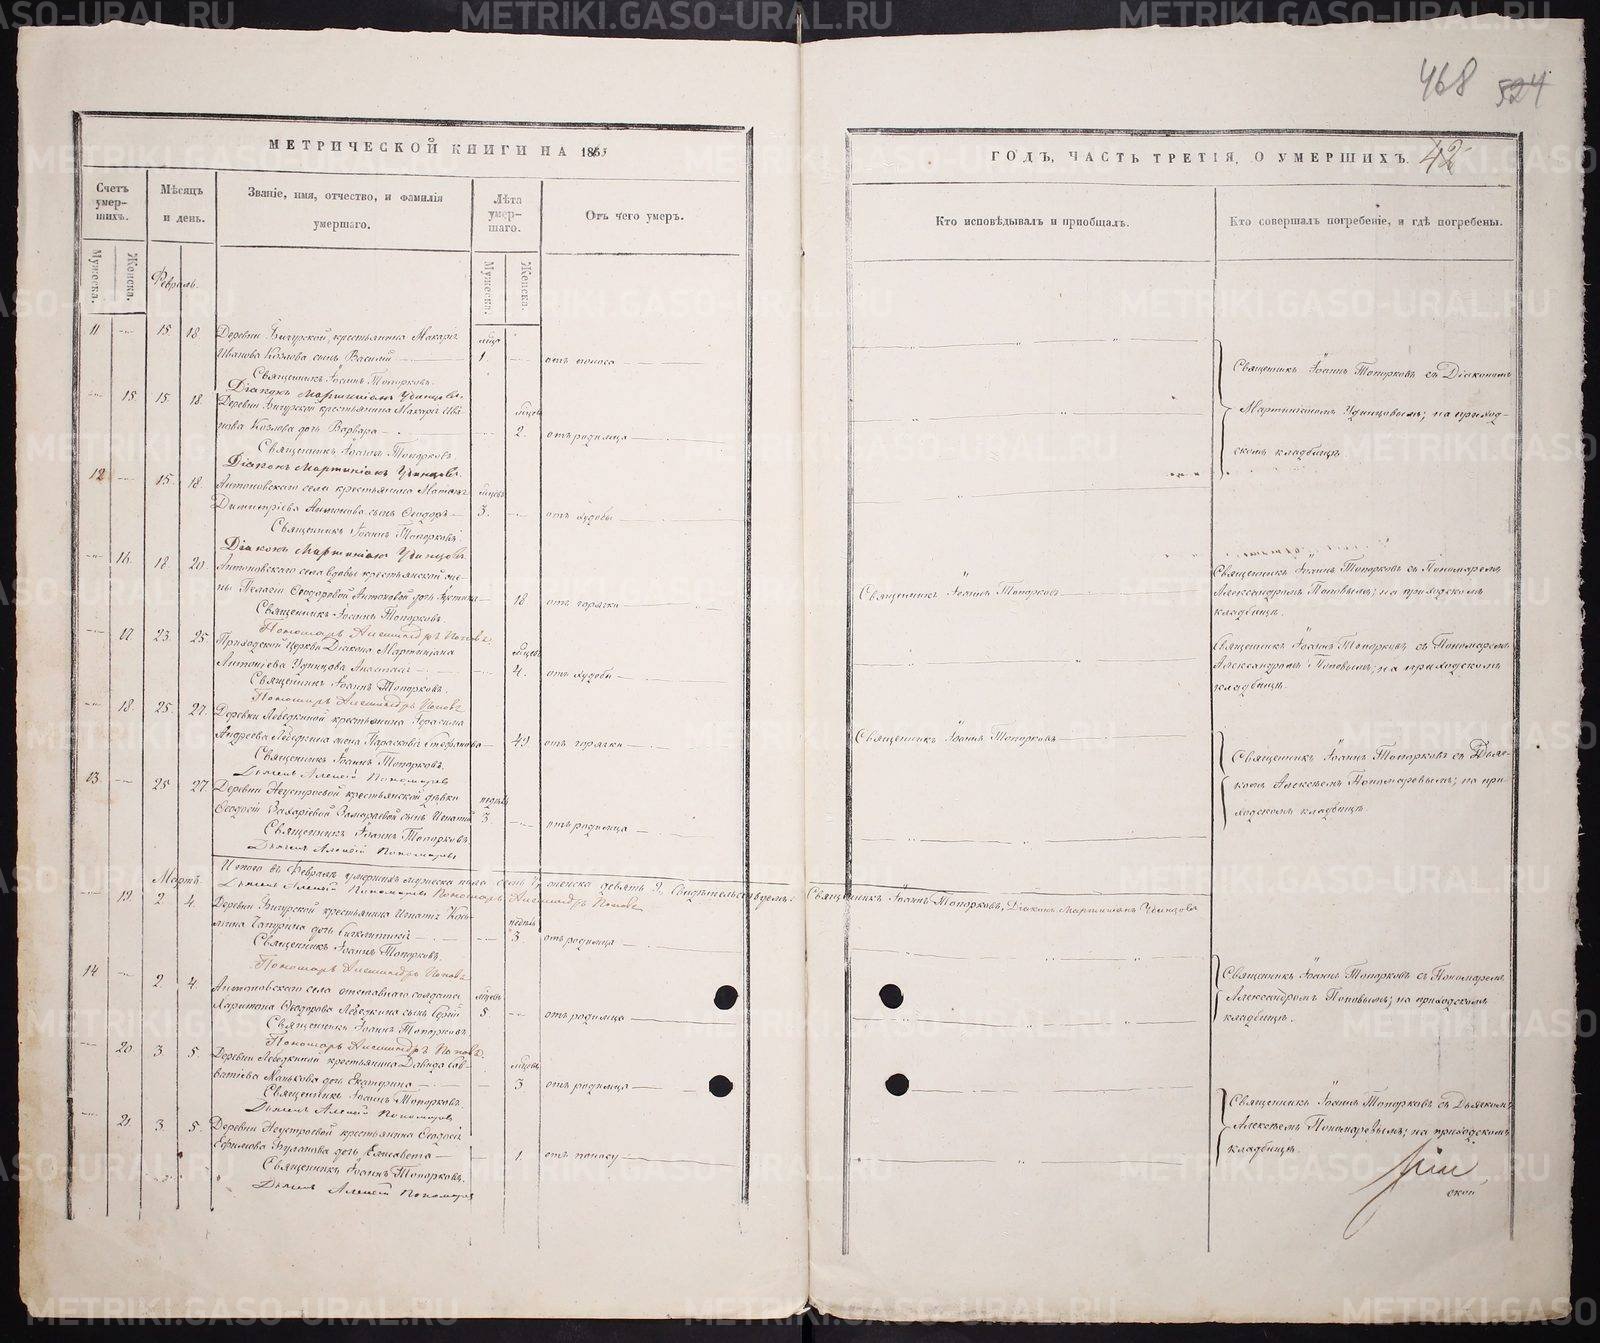 468 524
МЕТРИЧЕСКОЙ КНИГИ НА 1865
ГОДЪ, ЧАСТЬ ТРЕТІЯ, О УМЕРШИХЪ. 42
Счетъ умер-шихъ.
Мужеска.
Женска.
Мѣсяцъ и день.
Званіе, имя, отчество, и фамилія умершаго.
Лѣта умер-шаго.
Мужеска.
Женска.
Отъ чего умеръ.
Кто исповѣдывалъ и пріобщалъ.
Кто совершалъ погребеніе, и гдѣ погребены.
Февраль.
11 15. 18. Деревни Бичурской, крестьянина Макарія
Иванова Козлова сынъ Василій 1. отъ поноса
Священникъ Іоаннъ Топорковъ.
Діаконъ Мартиніанъ Удинцовъ.
15. 15. 18. Деревни Бичурской крестьянина Макарія Ива-
нова Козлова дочь Варвара 2. отъ родимца
Священникъ Іоаннъ Топорковъ
Діаконъ Мартиніанъ Удинцовъ.
Священникъ Іоаннъ Топорковъ съ Діакономъ
Мартиніаномъ Удинцовымъ; на приход-
скомъ кладбищѣ
12 15. 18. Антоновскаго села крестьянина
Димитріева Антонова сынъ Ѳеодоръ 3. отъ худобы
Священникъ Іоаннъ Топорковъ.
Діаконъ Мартиніанъ Удинцовъ.
16. 18. 20. Антоновскаго села вдовы крестьянской
Пелагіи Ѳеодоровой Антоновой дочь 18 отъ горячки
Священникъ Іоаннъ Топорковъ.
Пономарь Александръ Поповъ.
Священникъ Іоаннъ Топорковъ
Священникъ Іоаннъ Топорковъ съ Пономаремъ
Александромъ Поповымъ; на приходскомъ
кладбищѣ.
17 23. 25. Приходской церкви Діакона Мартиніана мѣсяц.
Антоніева Удинцова Анастасія 4. отъ худобы
Священникъ Іоаннъ Топорковъ.
Пономарь Александръ Поповъ
Священникъ Іоаннъ Топорковъ съ Пономаремъ
Александромъ Поповымъ; на приходскомъ
кладбищѣ.
18. 25. 27. Деревни Лебедкиной крестьянина Герасима
Андреева Лебедкина жена Параскевія Стефанова 49 отъ горячки
Священникъ Іоаннъ Топорковъ.
Дьячекъ Алексій Пономаревъ
Священникъ Іоаннъ Топорковъ
13. 25 27 Деревни Неустроевой крестьянской дѣвки недѣль
Ѳеодосіи Захаріевой сынъ Игнатій 3. отъ родимца
Священникъ Іоаннъ Топорковъ.
Дьячекъ Алексій Пономаревъ
Священникъ Іоаннъ Топорковъ съ Дьяч-
комъ Алексѣемъ Пономаревымъ; на при-
ходскомъ кладбищѣ.
Итого въ Февралѣ умершихъ мужеска пола семь 7, женска девять 9. Свидѣтельствуемъ: Священникъ Іоаннъ Топорковъ, Діаконъ Мартиніанъ Удинцовъ
Дьячекъ Алексій Пономаревъ Пономарь Александръ Поповъ
Мартъ.
19. 2 4. Деревни Бичурской крестьянина Игнатія Козь-
мина Чапурина дочь 3 отъ родимца
Священникъ Іоаннъ Топорковъ.
Пономарь Александръ Поповъ
14 2 4. Антоновскаго села отставнаго солдата
Харитона Ѳеодорова Лебедкина сынъ 5. отъ родимца
Священникъ Іоаннъ Топорковъ
Пономарь Александръ Поповъ.
Священникъ Іоаннъ Топорковъ съ Пономаремъ
Александромъ Поповымъ; на приходскомъ
кладбищѣ.
20. 3 5. Деревни Лебедкиной крестьянина Давида Сав-
ватіева Манькова дочь Екатерина 3 отъ родимца
Священникъ Іоаннъ Топорковъ.
Дьячекъ Алексій Пономаревъ
21. 3. 5. Деревни Неустроевой крестьянина
Ефимова Буланова дочь Елисавета 1. отъ поносу
Священникъ Іоаннъ Топорковъ.
Дьячекъ Алексій Пономаревъ
Священникъ Іоаннъ Топорковъ съ Дьячкомъ
Алексѣемъ Пономаревымъ; на приходскомъ
кладбищѣ.
ской
METRIKI.GASO-URAL.RU